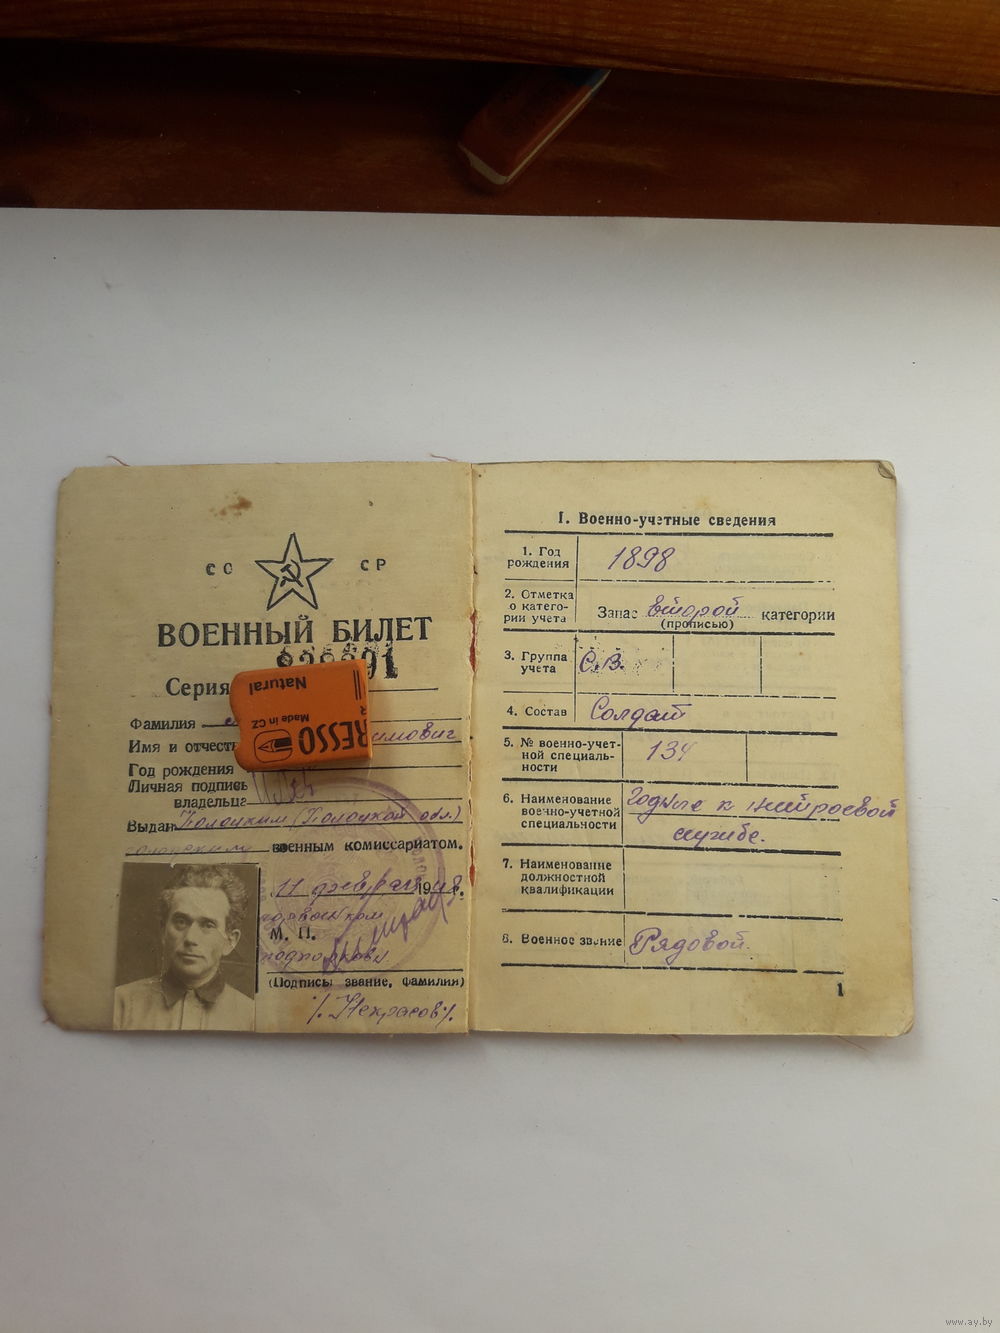 СС СР
ВОЕННЫЙ БИЛЕТ
Серия
Фамилия
Имя и отчест имович
Год рождения
Личная подпись
владельца
Выдан Полоцким (Полоцкой обл.)
военным комиссариатом.
11 февраля 1948 г.
горвоенком
М. П.
подполковн
(Подпись, звание, фамилия)
/. Некрасов/.
Natural
Made in CZ
RESSO
I. Военно-учетные сведения
1. Год рождения 1898
2. Отметка о катего-рии учета Запас второй категории
(прописью)
3. Группа учета С.В.
4. Состав Солдат
5. № военно-учет-ной специаль-ности 134
6. Наименование военно-учетной специальности Годные к нестроевой службе.
7. Наименование должностной квалификации
8. Военное звание Рядовой.
1
www.ay.by